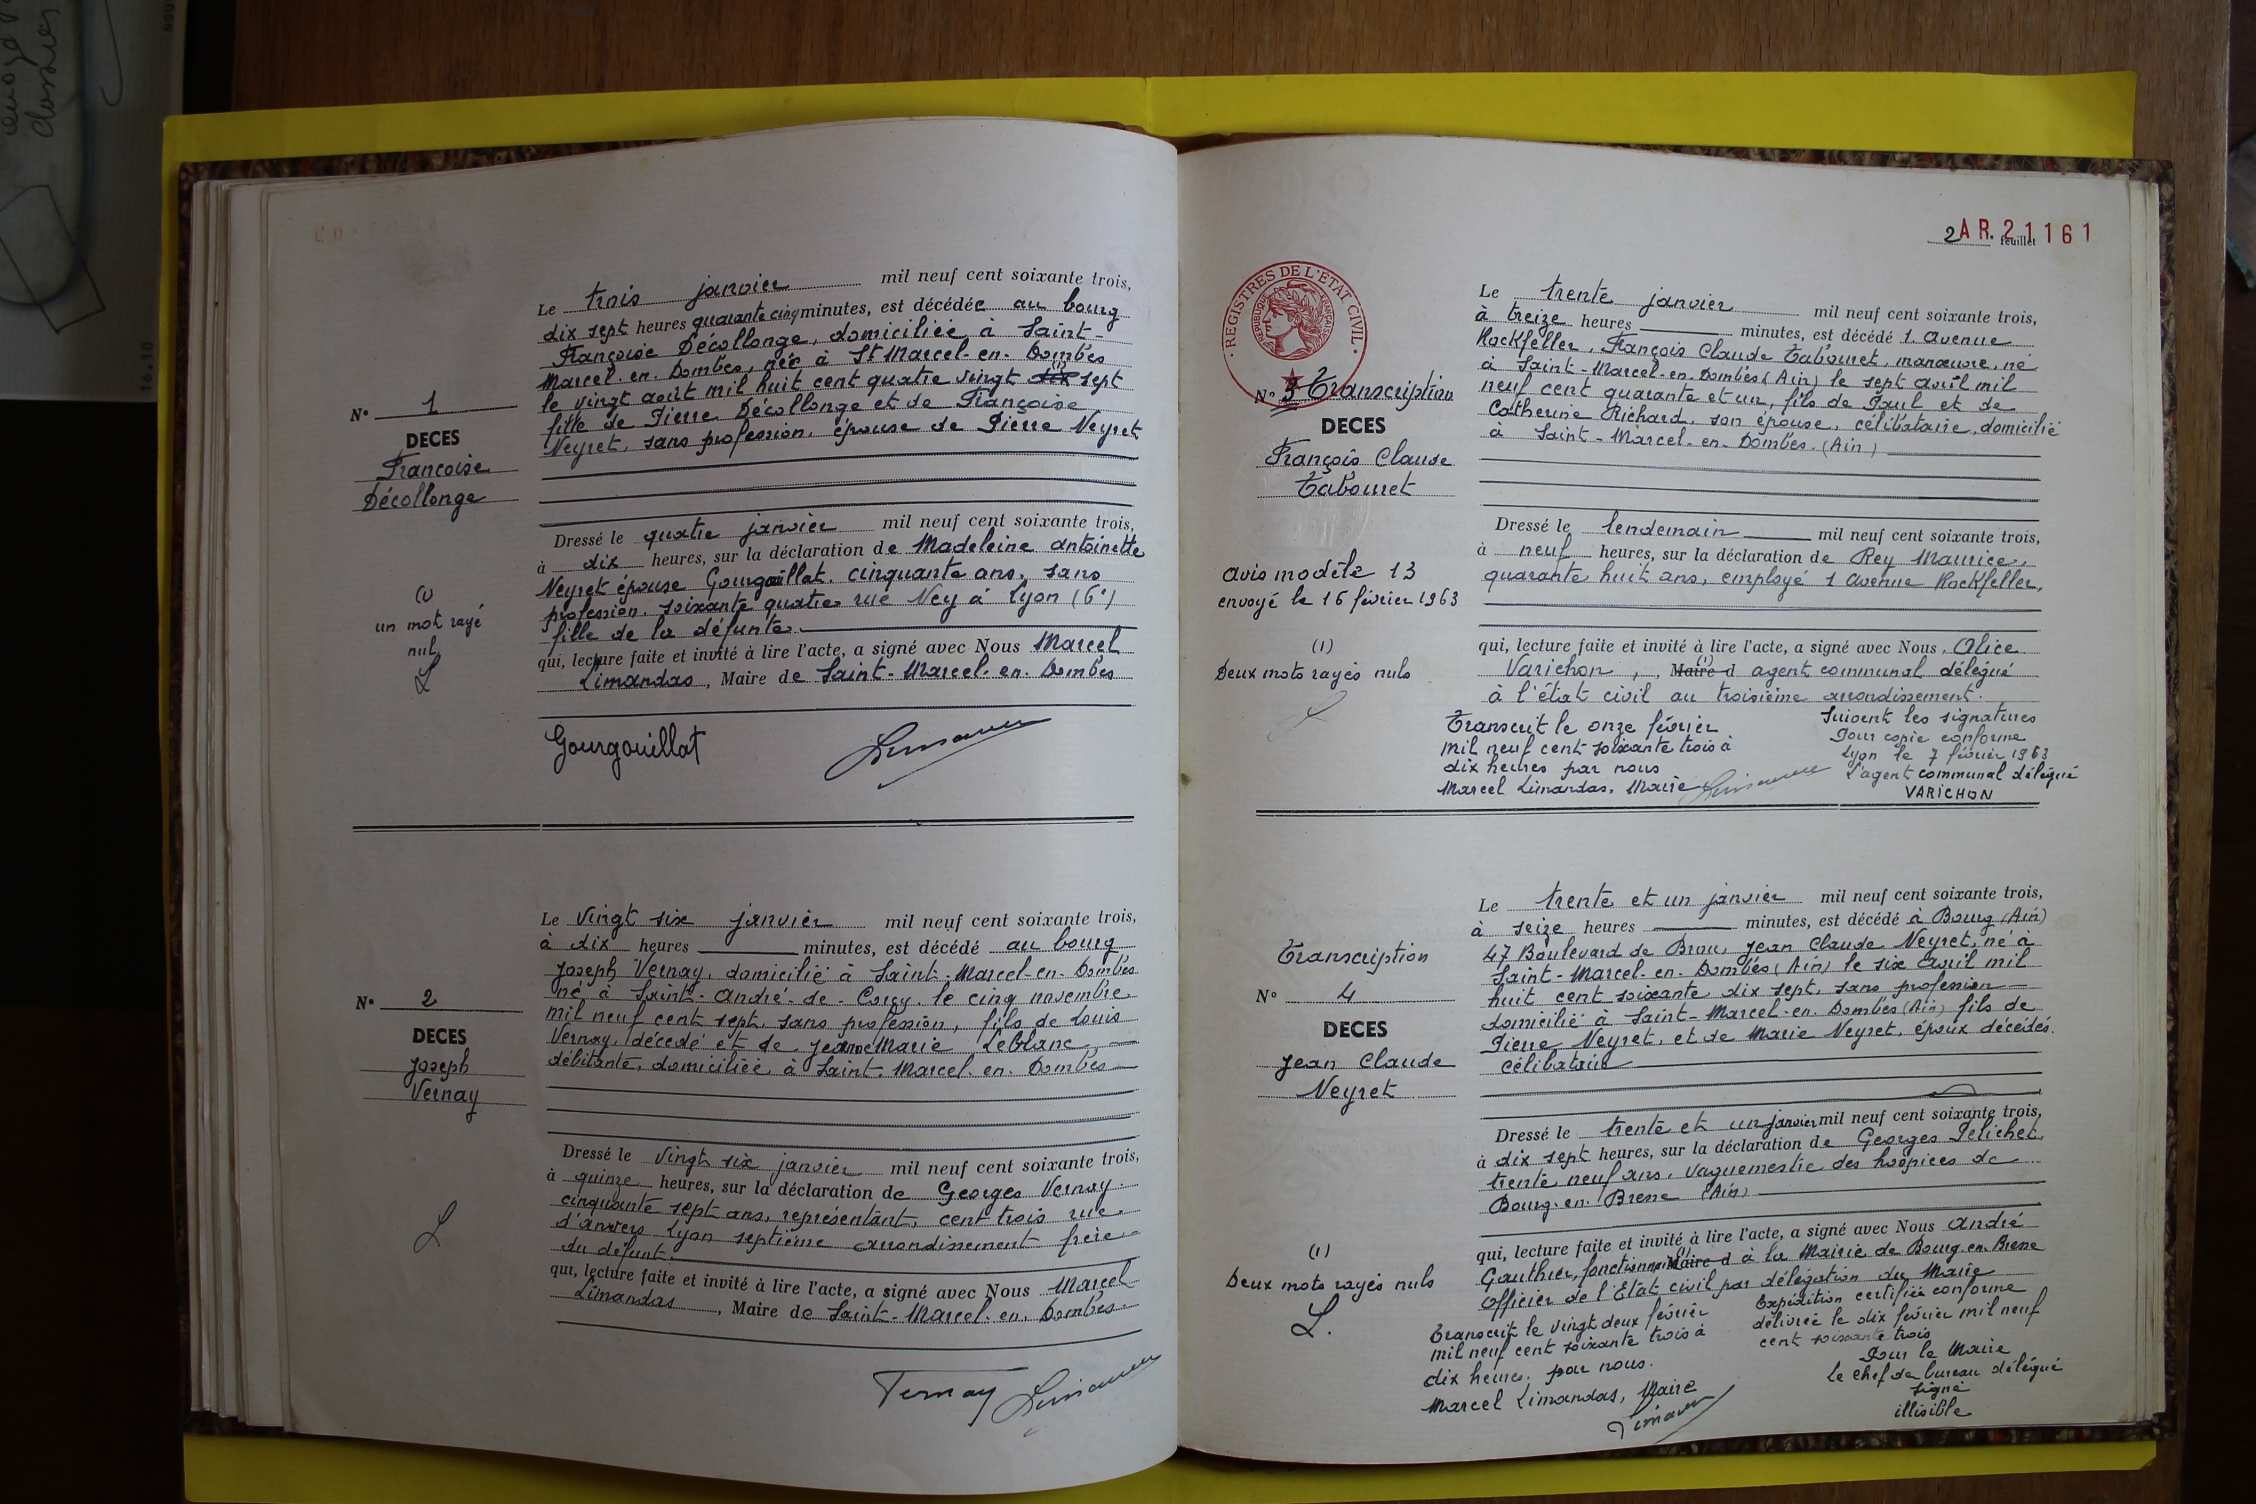 Le trois janvier mil neuf cent soixante trois,
dix sept heures quarante cinq minutes, est décédée au bourg
Françoise Décollonge, domiciliée à Saint-
Marcel-en-Dombes, née à St Marcel-en-Dombes
le vingt août mil huit cent quatre vingt dix (1) sept
fille de Pierre Décollonge et de Françoise
Neyret, sans profession, épouse de Pierre Neyret
N° 1
DECES
Françoise
Décollonge
Dressé le quatre janvier mil neuf cent soixante trois,
à dix heures, sur la déclaration de Madeleine Antoinette
Neyret épouse Gourgouillat, cinquante ans, sans
profession, soixante quatre rue Ney à Lyon (6e)
fille de la défunte.
qui, lecture faite et invité à lire l'acte, a signé avec Nous Marcel
Limandas, Maire de Saint-Marcel-en-Dombes
(1)
un mot rayé
nul
L
Gourgouillat
Le vingt six janvier mil neuf cent soixante trois,
à dix heures minutes, est décédé au bourg
Joseph Vernay, domicilié à Saint-Marcel-en-Dombes
né à Saint-André-de-Corcy le cinq novembre
mil neuf cent sept, sans profession, fils de Louis
Vernay, décédé et de Jeanne Marie Leblanc,
débitante, domiciliée à Saint-Marcel-en-Dombes
N° 2
DECES
Joseph
Vernay
Dressé le vingt six janvier mil neuf cent soixante trois,
à quinze heures, sur la déclaration de Georges Vernay
cinquante sept ans, représentant, cent trois rue
d'anvers Lyon septième arrondissement frère
du défunt.
qui, lecture faite et invité à lire l'acte, a signé avec Nous Marcel
Limandas, Maire de Saint-Marcel-en-Dombes.
L
Vernay
2 AR.21161
feuillet
REGISTRES DE L'ETAT CIVIL
REPUBLIQUE FRANÇAISE
Le trente janvier mil neuf cent soixante trois,
à treize heures minutes, est décédé 1, avenue
Rockfeller, François Claude Tabouret, manœuvre, né
à Saint-Marcel-en-Dombes (Ain) le sept avril mil
neuf cent quarante et un, fils de Paul et de
Catherine Richard, son épouse, célibataire, domicilié
à Saint-Marcel-en-Dombes. (Ain)
N° 3 Transcription
DECES
François Claude
Tabouret
Dressé le lendemain mil neuf cent soixante trois,
à neuf heures, sur la déclaration de Rey Maurice,
quarante huit ans, employé 1 avenue Rockfeller,
avis modèle 13
envoyé le 16 février 1963
qui, lecture faite et invité à lire l'acte, a signé avec Nous, Alice
Varichon, Maire d (1) agent communal délégué
à l'état civil au troisième arrondissement.
(1)
Deux mots rayés nuls
L
Transcrit le onze février
mil neuf cent soixante trois à
dix heures par nous
Marcel Limandas, Maire
Suivent les signatures
Pour copie conforme
Lyon le 7 février 1963
L'agent communal délégué
VARICHON
Le trente et un janvier mil neuf cent soixante trois,
à seize heures minutes, est décédé à Bourg (Ain)
47 Boulevard de Brou, Jean Claude Neyret, né à
Saint-Marcel-en-Dombes (Ain) le six avril mil
huit cent soixante dix sept, sans profession
domicilié à Saint-Marcel-en-Dombes (Ain) fils de
Pierre Neyret, et de Marie Neyret, époux décédés.
célibataire
Transcription
N° 4
DECES
Jean Claude
Neyret
Dressé le trente et un janvier mil neuf cent soixante trois,
à dix sept heures, sur la déclaration de Georges Pelichet,
trente neuf ans, vaguemestre des hospices de
Bourg-en-Bresse (Ain)
qui, lecture faite et invité à lire l'acte, a signé avec Nous André
Gauthier, fonctionnaire (1) Maire d à la Mairie de Bourg-en-Bresse
Officier de l'Etat civil par délégation du Maire
(1)
Deux mots rayés nuls
L.
Transcrit le vingt deux février
mil neuf cent soixante trois à
dix heures, par nous.
Marcel Limandas, Maire
Expédition certifiée conforme
délivrée le dix février mil neuf
cent soixante trois
Pour le Maire
Le chef de bureau délégué
signé
illisible
16.10